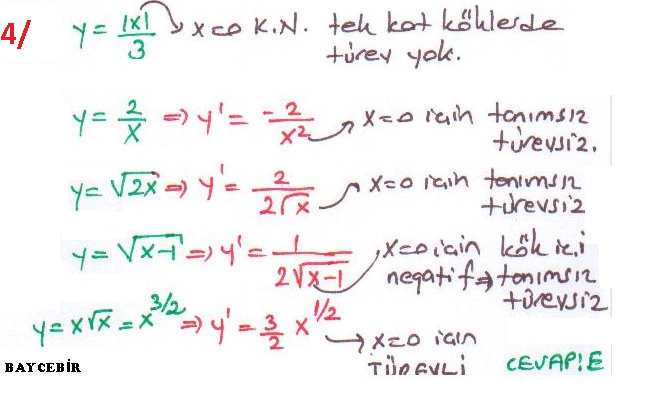 4/ y = |x|/3 → x=0 K.N. tek kat köklerde
türev yok.
y = 2/x ⇒ y' = -2/x² → x=0 için tanımsız
türevsiz.
y = √2x ⇒ y' = 2/2√x → x=0 için tanımsız
türevsiz
y = √x-1 ⇒ y' = 1/2√x-1 → x=0 için kök içi
negatif ⇒ tanımsız
türevsiz
y = x√x = x^3/2 ⇒ y' = 3/2 x^1/2
→ x=0 için
TÜREVLİ CEVAP:E
BAYCEBİR